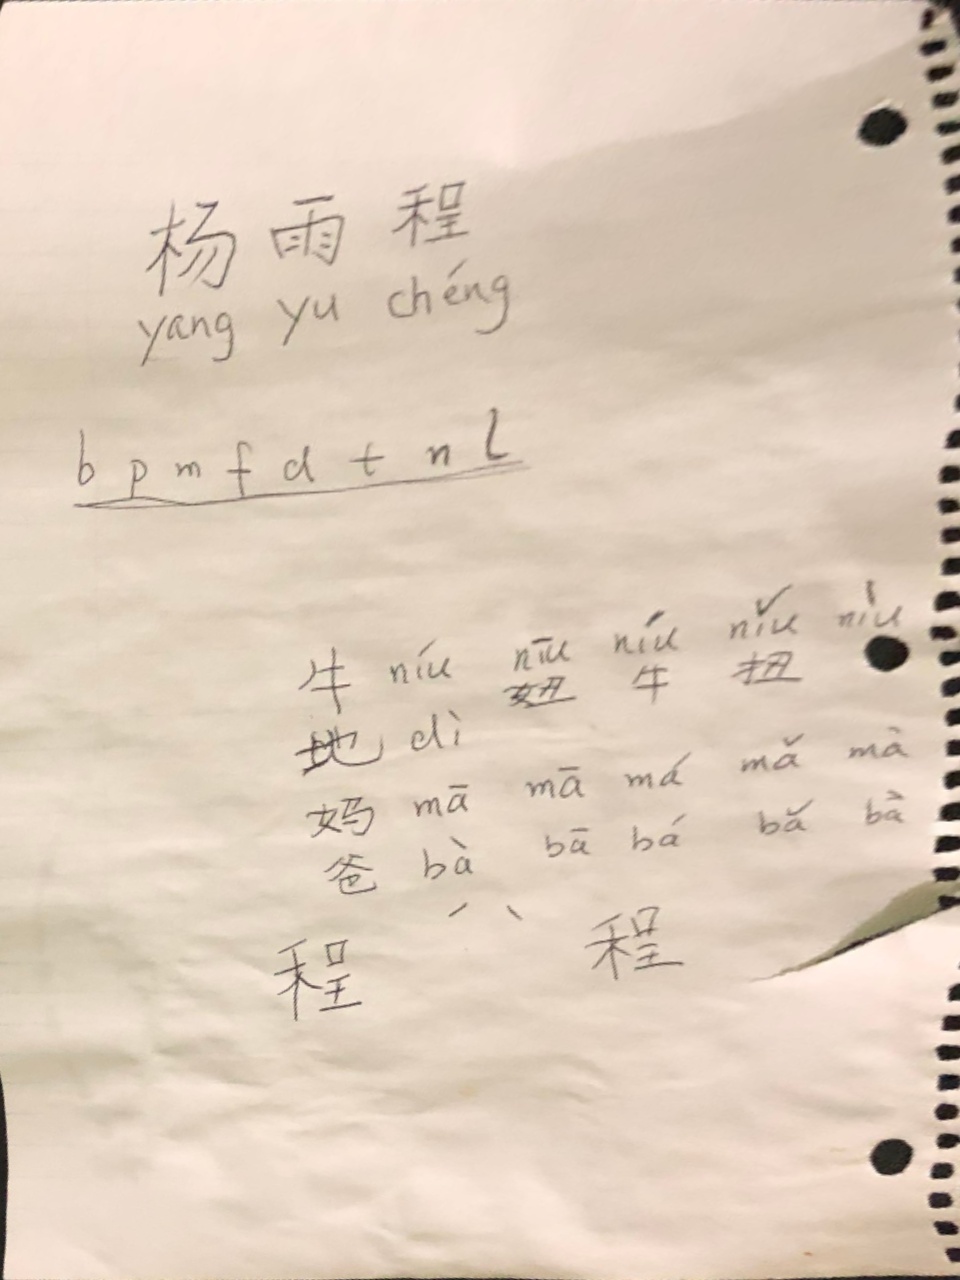 杨 雨 程
yang yu chéng
b p m f d t n l
牛 níu nīu níu nǐu nìu
妞 牛 扭
地 dì
妈 mā mā má mǎ mà
爸 bà bā bá bǎ bà
程 程